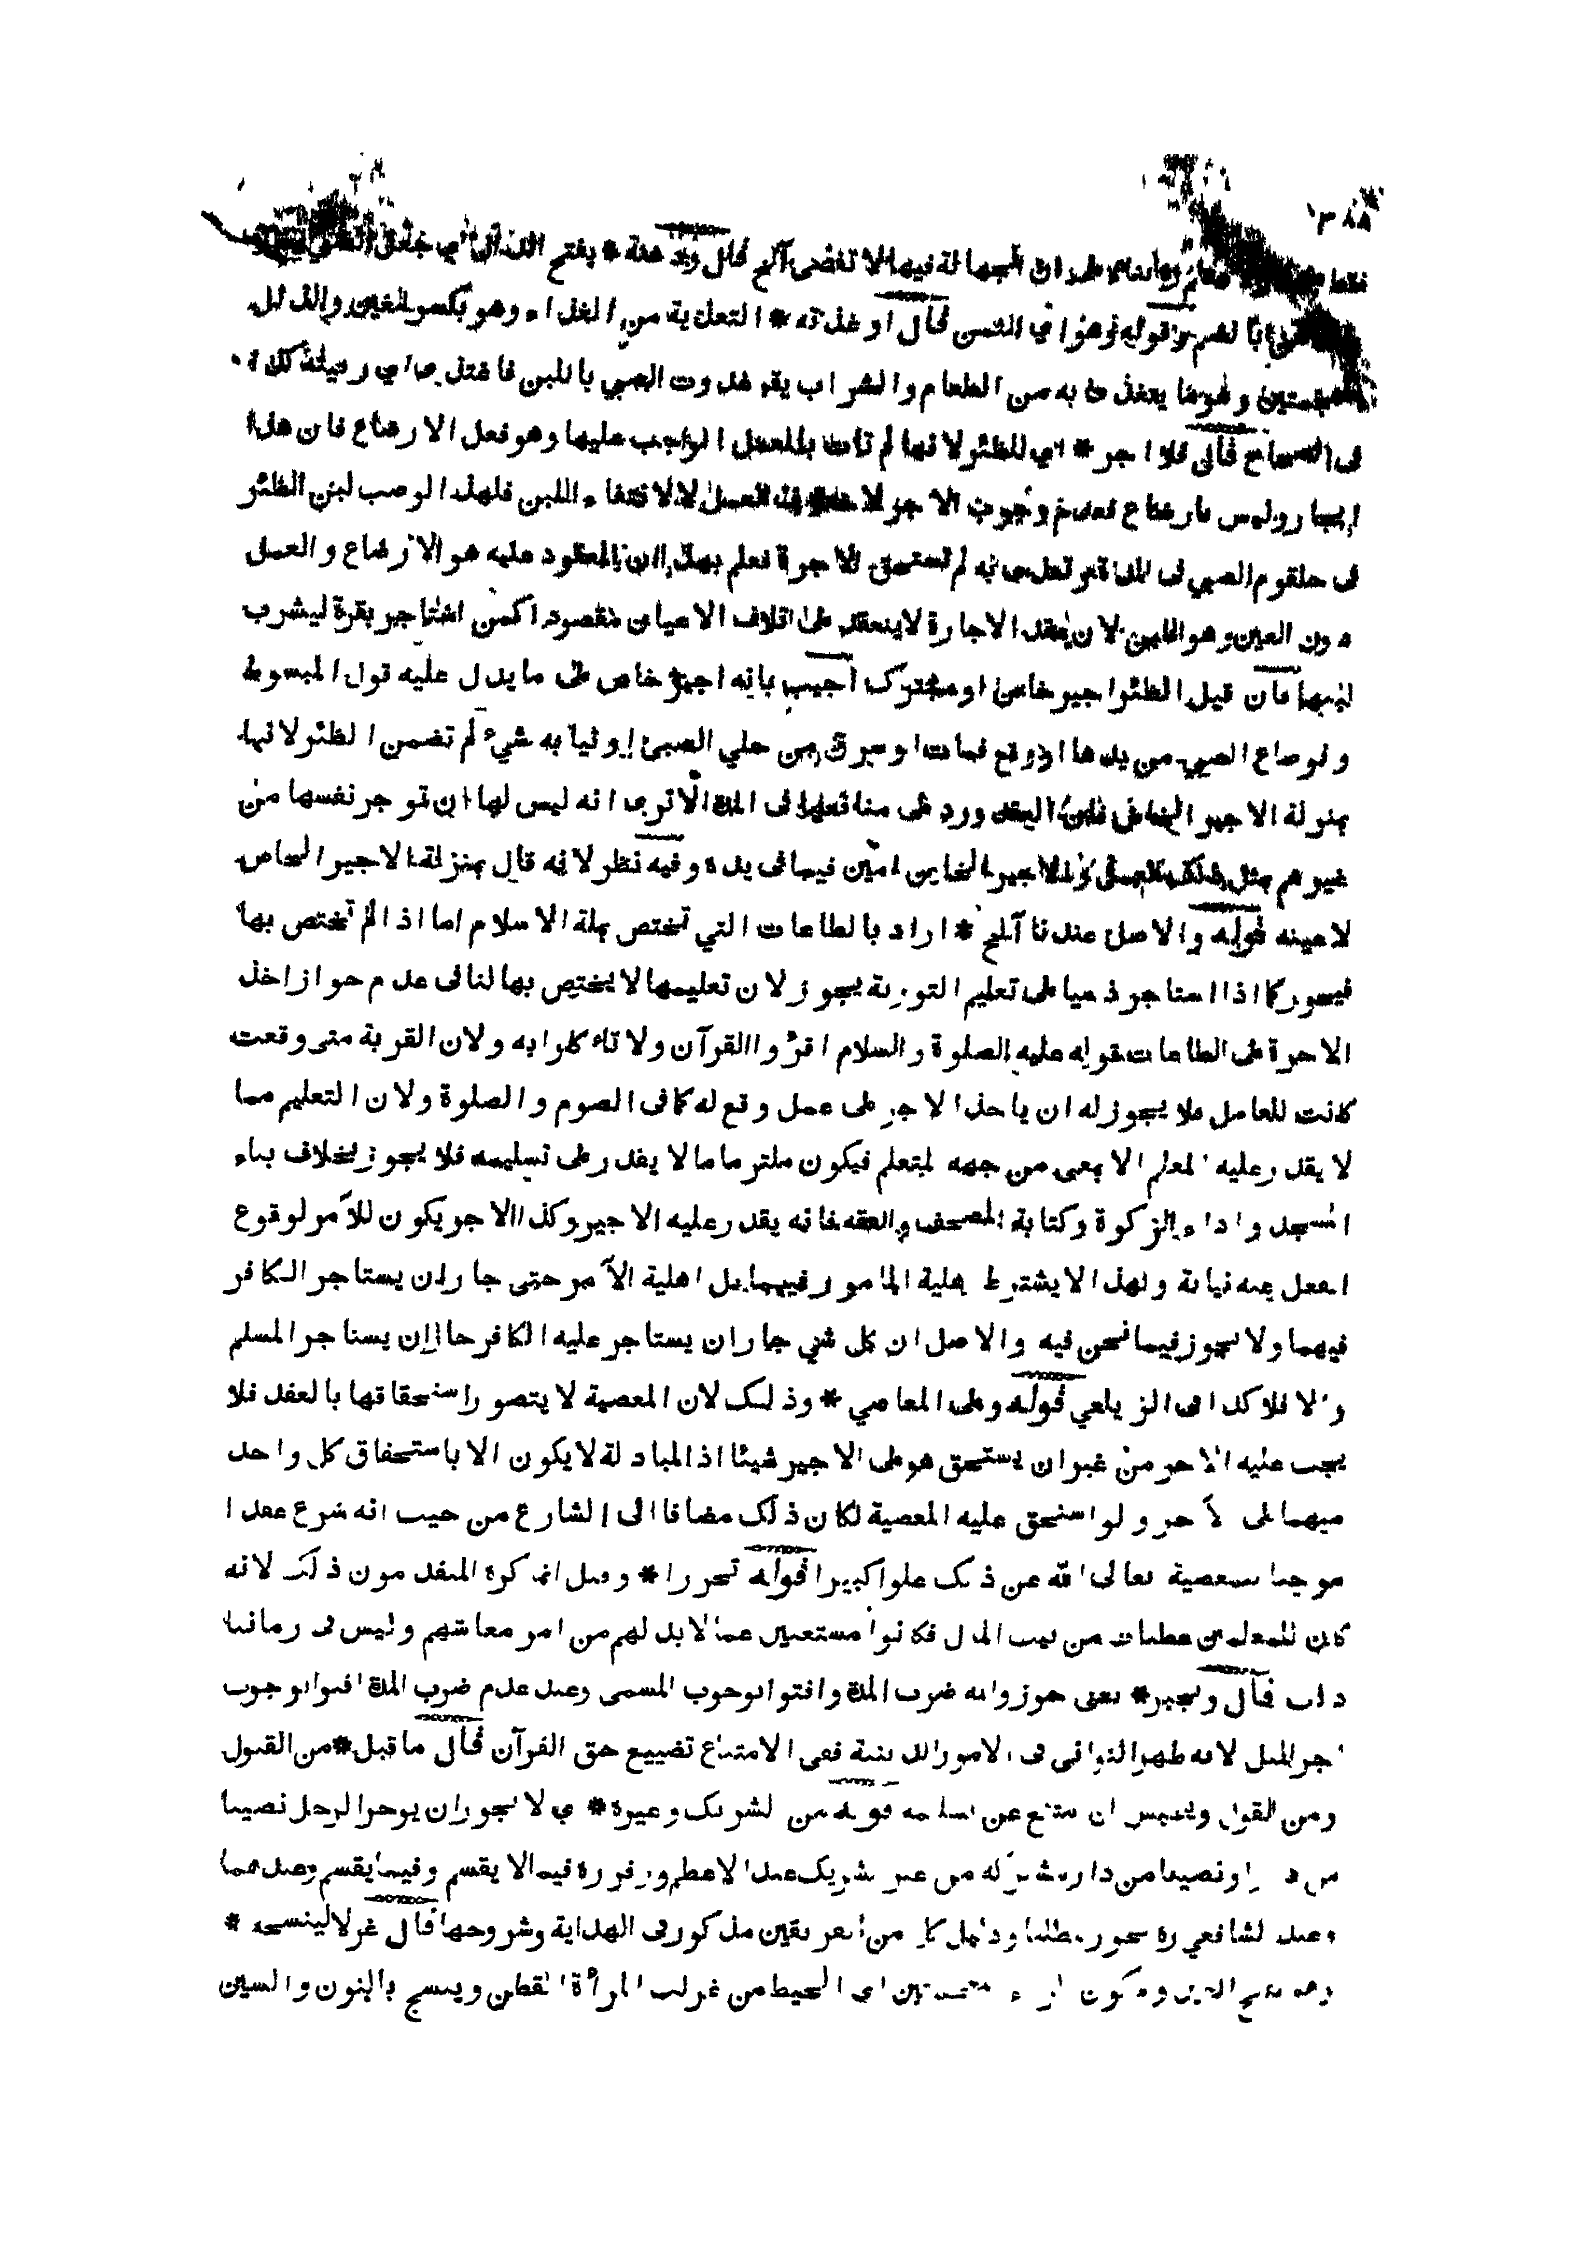 ٣٨٨
فقط الجهالة فيها لا تفضي الخ قال وقد هنة * بفتح
بالضم وقوله وهو اي الثمن قال او غذته * التغذية من الغذاء وهو بكسر الغين والذال
المعجمتين وهو ما يتغذى به من الطعام والشراب يقو غذوت الصبي باللبن فاغتذى اي ربيته كذا
في الصحاح قال فلا اجر * اي للظئر لانها لم تأت بالعمل الواجب عليها وهو فعل الارضاع فان هذا
ايجار وليس بارضاع فعدم وجوب الاجر لا لانتفاء اللبن فلهذا لو صب لبن الظئر
في حلقوم الصبي في المدة لم تستحق الاجرة فعلم بهذا ان المعقود عليه هو الارضاع والعمل
دون العين وهو اللبن لان عقد الاجارة لا ينعقد على اتلاف الاعيان مقصودا كمن استاجر بقرة ليشرب
لبنها فان قيل الظئر اجير خاص او مشترك اجيب بانه اجير خاص على ما يدل عليه قول المبسوط
ولو ضاع الصبي من يدها او وقع فمات او سرق من حلي الصبي او ثيابه شيء لم تضمن الظئر لانها
بمنزلة الاجير الخاص فان العقد ورد على منافعها في المدة الا ترى انه ليس لها ان توجر نفسها من
غيرهم بمثل ذلك العمل والاجير الخاص امين فيما في يده وفيه نظر لانه قال بمنزلة الاجير الخاص
لا عينه قوله والاصل عندنا الخ * اراد بالطاعات التي تختص بملة الاسلام اما اذا لم تختص بها
فيجوز كما اذا استاجر ذميا على تعليم التورية يجوز لان تعليمها لا يختص بها لنا في عدم جواز اخذ
الاجرة على الطاعات قوله عليه الصلوة والسلام اقرؤا القرآن ولا تاكلوا به ولان القربة متى وقعت
كانت للعامل فلا يجوز له ان ياخذ الاجر على عمل وقع له كما في الصوم والصلوة ولان التعليم مما
لا يقدر عليه المعلم الا بمعنى من جهة المتعلم فيكون ملتزما ما لا يقدر على تسليمه فلا يجوز بخلاف بناء
المسجد واداء الزكوة وكتابة المصحف والفقه فانه يقدر عليه الاجير وكذا الاجر يكون للآمر لوقوع
الفعل عنه نيابة ولهذا لا يشترط اهلية المامور فيهما بل اهلية الآمر حتى جاز ان يستاجر الكافر
فيهما ولا يجوز فيما نحن فيه والاصل ان كل شي جاز ان يستاجر عليه الكافر جاز ان يستاجر المسلم
والا فلا كذا في الزيلعي قوله وعلى المعاصي * وذلك لان المعصية لا يتصور استحقاقها بالعقد فلا
يجب عليه الاجر من غير ان يستحق هو على الاجير شيئا اذ المبادلة لا يكون الا باستحقاق كل واحد
منهما على الآخر ولو استحق عليه المعصية لكان ذلك مضافا الى الشارع من حيث انه شرع عقدا
موجبا للمعصية تعالى الله عن ذلك علوا كبيرا قوله تحرزا * وقيل انما كره المتقدمون ذلك لانه
كان للمعلمين عطيات من بيت المال فكانوا مستغنين عما لا بد لهم من امر معاشهم وليس في زماننا
ذلك قال ويجبر * يعني جوزوا له ضرب المدة وافتوا بوجوب المسمى وعند عدم ضرب المدة افتوا بوجوب
اجر المثل لانه ظهر التواني في الامور الدينية ففي الامتناع تضييع حق القرآن قال ما قبل * من القبول
ومن القول ويحبس ان امتنع عن تسليمه قوله من الشريك وغيره * اي لا يجوز ان يوجر الرجل نصيبا
من دار او نصيبا من دار مشتركة من غير شريك عند الاعظم وزفر ره فيما لا يقسم وفيما يقسم وعندهما
وعند الشافعي ره يجوز مطلقا ودليل كل من الفريقين مذكور في الهداية وشروحها قال غزلا لينسجه *
وهو بفتح الغين وسكون الزاء المعجمتين اي الخيط من غزلت المرأة القطن وينسج بالنون والسين